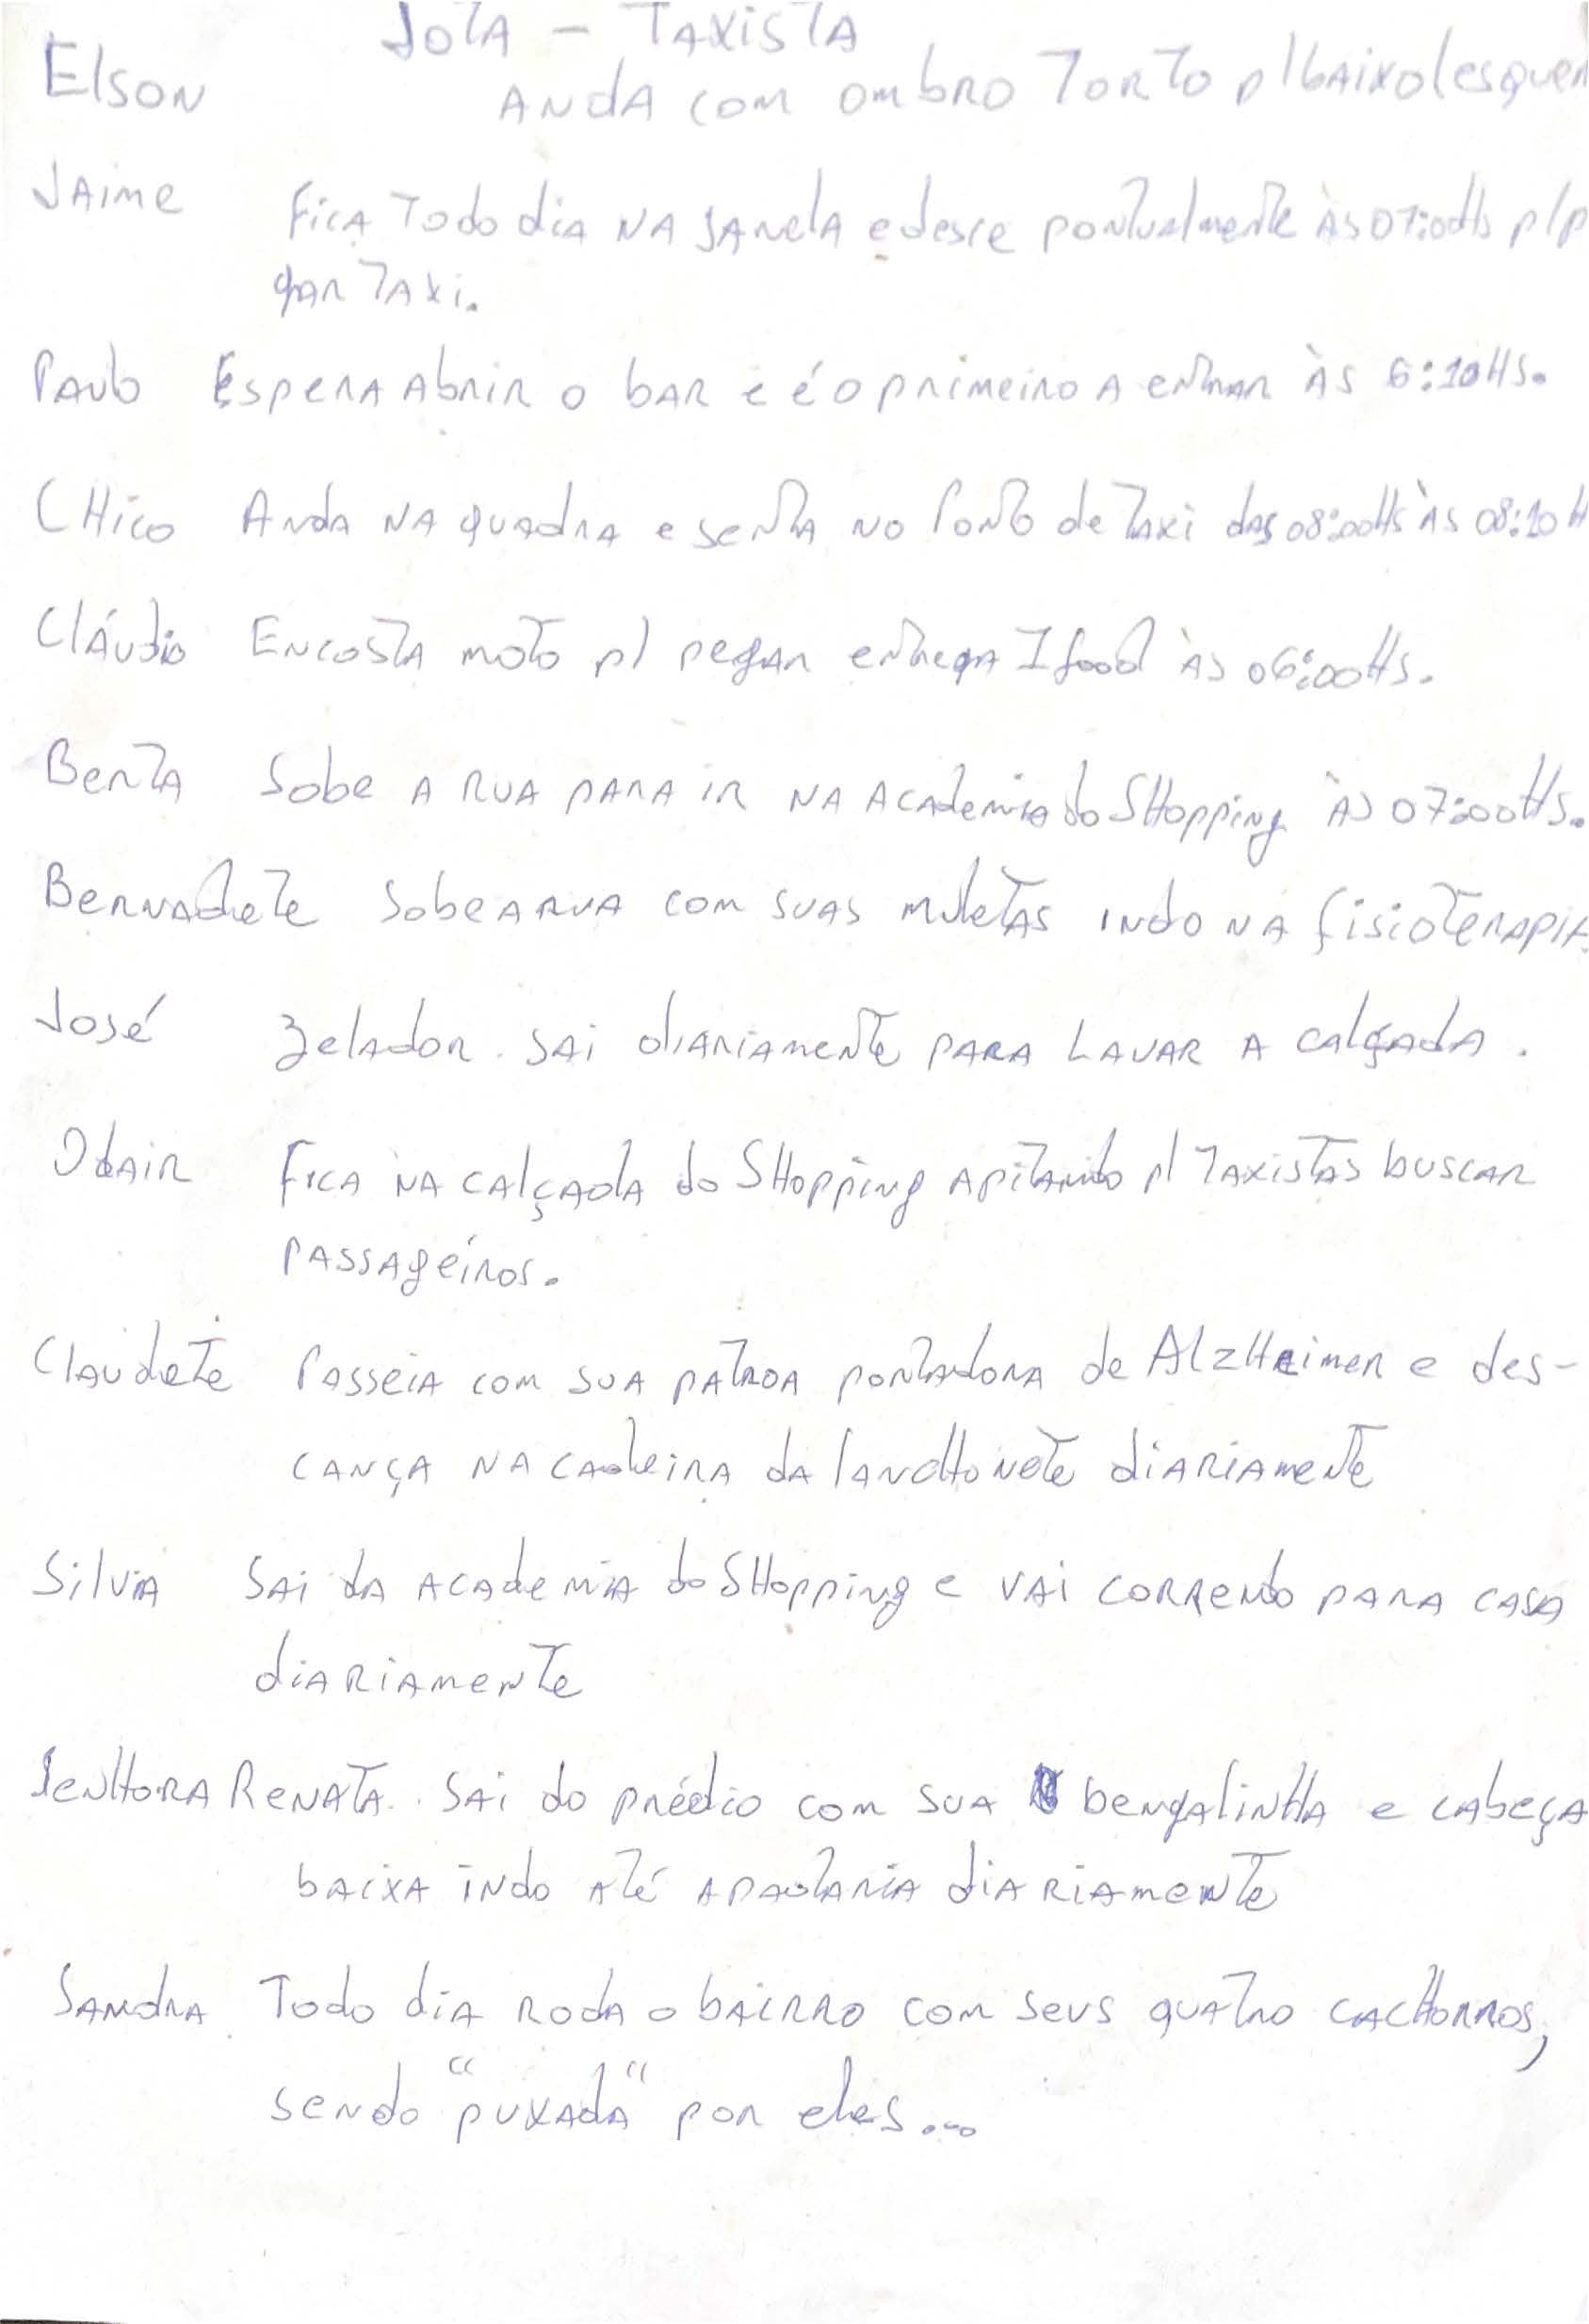 Jota - Taxista
Elson Anda com ombro torto p/baixo(esquer
Jaime Fica todo dia na janela e desce pontualmente às 07:00Hs p/p
gar Taxi.
Paulo Espera abrir o bar e é o primeiro a entrar às 6:10Hs.
Chico Anda na quadra e senta no Ponto de Taxi das 08:00Hs às 08:10H
Cláudio Encosta moto p/ pegar entrega Ifood às 06:00Hs.
Benta Sobe a rua para ir na Academia do Shopping às 07:00Hs.
Bernadete Sobe a rua com suas muletas indo na fisioterapia
José Zelador. Sai diariamente para lavar a calçada.
Odair Fica na calçada do Shopping apitando p/ Taxistas buscar
passageiros.
Claudete Passeia com sua patroa portadora de Alzheimer e des-
cança na cadeira da lanchonete diariamente
Silvia Sai da academia do Shopping e vai correndo para casa
diariamente
Senhora Renata. Sai do prédio com sua bengalinha e cabeça
baixa indo até a padaria diariamente
Sandra Todo dia roda o bairro com seus quatro cachorros,
sendo "puxada" por eles...